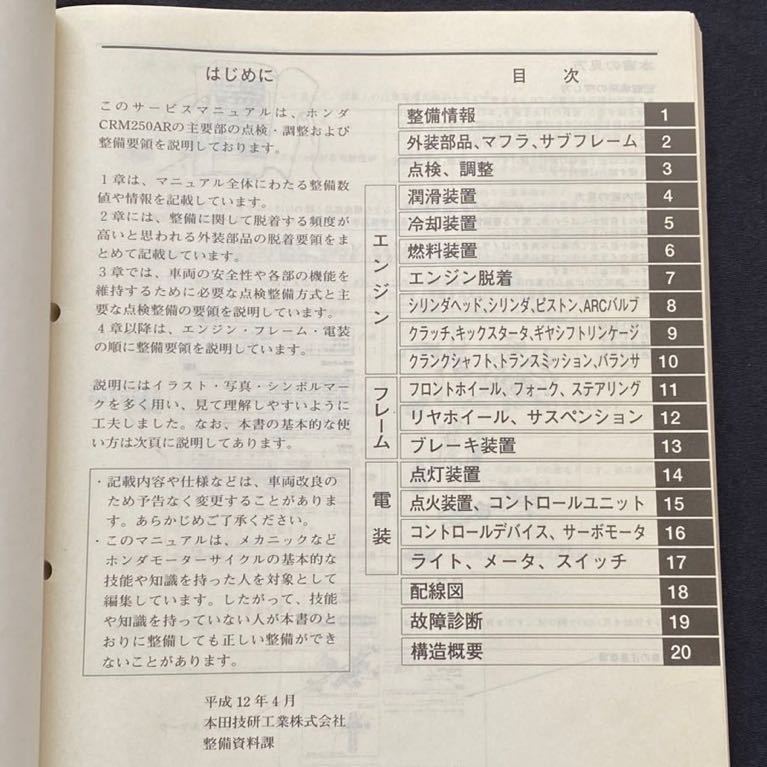 はじめに
このサービスマニュアルは、ホンダ
CRM250ARの主要部の点検・調整および
整備要領を説明しております。
1章は、マニュアル全体にわたる整備数
値や情報を記載しています。
2章には、整備に関して脱着する頻度が
高いと思われる外装部品の脱着要領をま
とめて記載しています。
3章では、車両の安全性や各部の機能を
維持するために必要な点検整備方式と主
要な点検整備の要領を説明しています。
4章以降は、エンジン・フレーム・電装
の順に整備要領を説明しています。
説明にはイラスト・写真・シンボルマー
クを多く用い、見て理解しやすいように
工夫しました。なお、本書の基本的な使
い方は次頁に説明してあります。
・記載内容や仕様などは、車両改良の
ため予告なく変更することがありま
す。あらかじめご了承ください。
・このマニュアルは、メカニックなど
ホンダモーターサイクルの基本的な
技能や知識を持った人を対象として
編集しています。したがって、技能
や知識を持っていない人が本書のと
おりに整備しても正しい整備ができ
ないことがあります。
平成12年4月
本田技研工業株式会社
整備資料課
目 次
整備情報 1
外装部品、マフラ、サブフレーム 2
点検、調整 3
エンジン
潤滑装置 4
冷却装置 5
燃料装置 6
エンジン脱着 7
シリンダヘッド、シリンダ、ピストン、ARCバルブ 8
クラッチ、キックスタータ、ギヤシフトリンケージ 9
クランクシャフト、トランスミッション、バランサ 10
フレーム
フロントホイール、フォーク、ステアリング 11
リヤホイール、サスペンション 12
ブレーキ装置 13
電装
点灯装置 14
点火装置、コントロールユニット 15
コントロールデバイス、サーボモータ 16
ライト、メータ、スイッチ 17
配線図 18
故障診断 19
構造概要 20